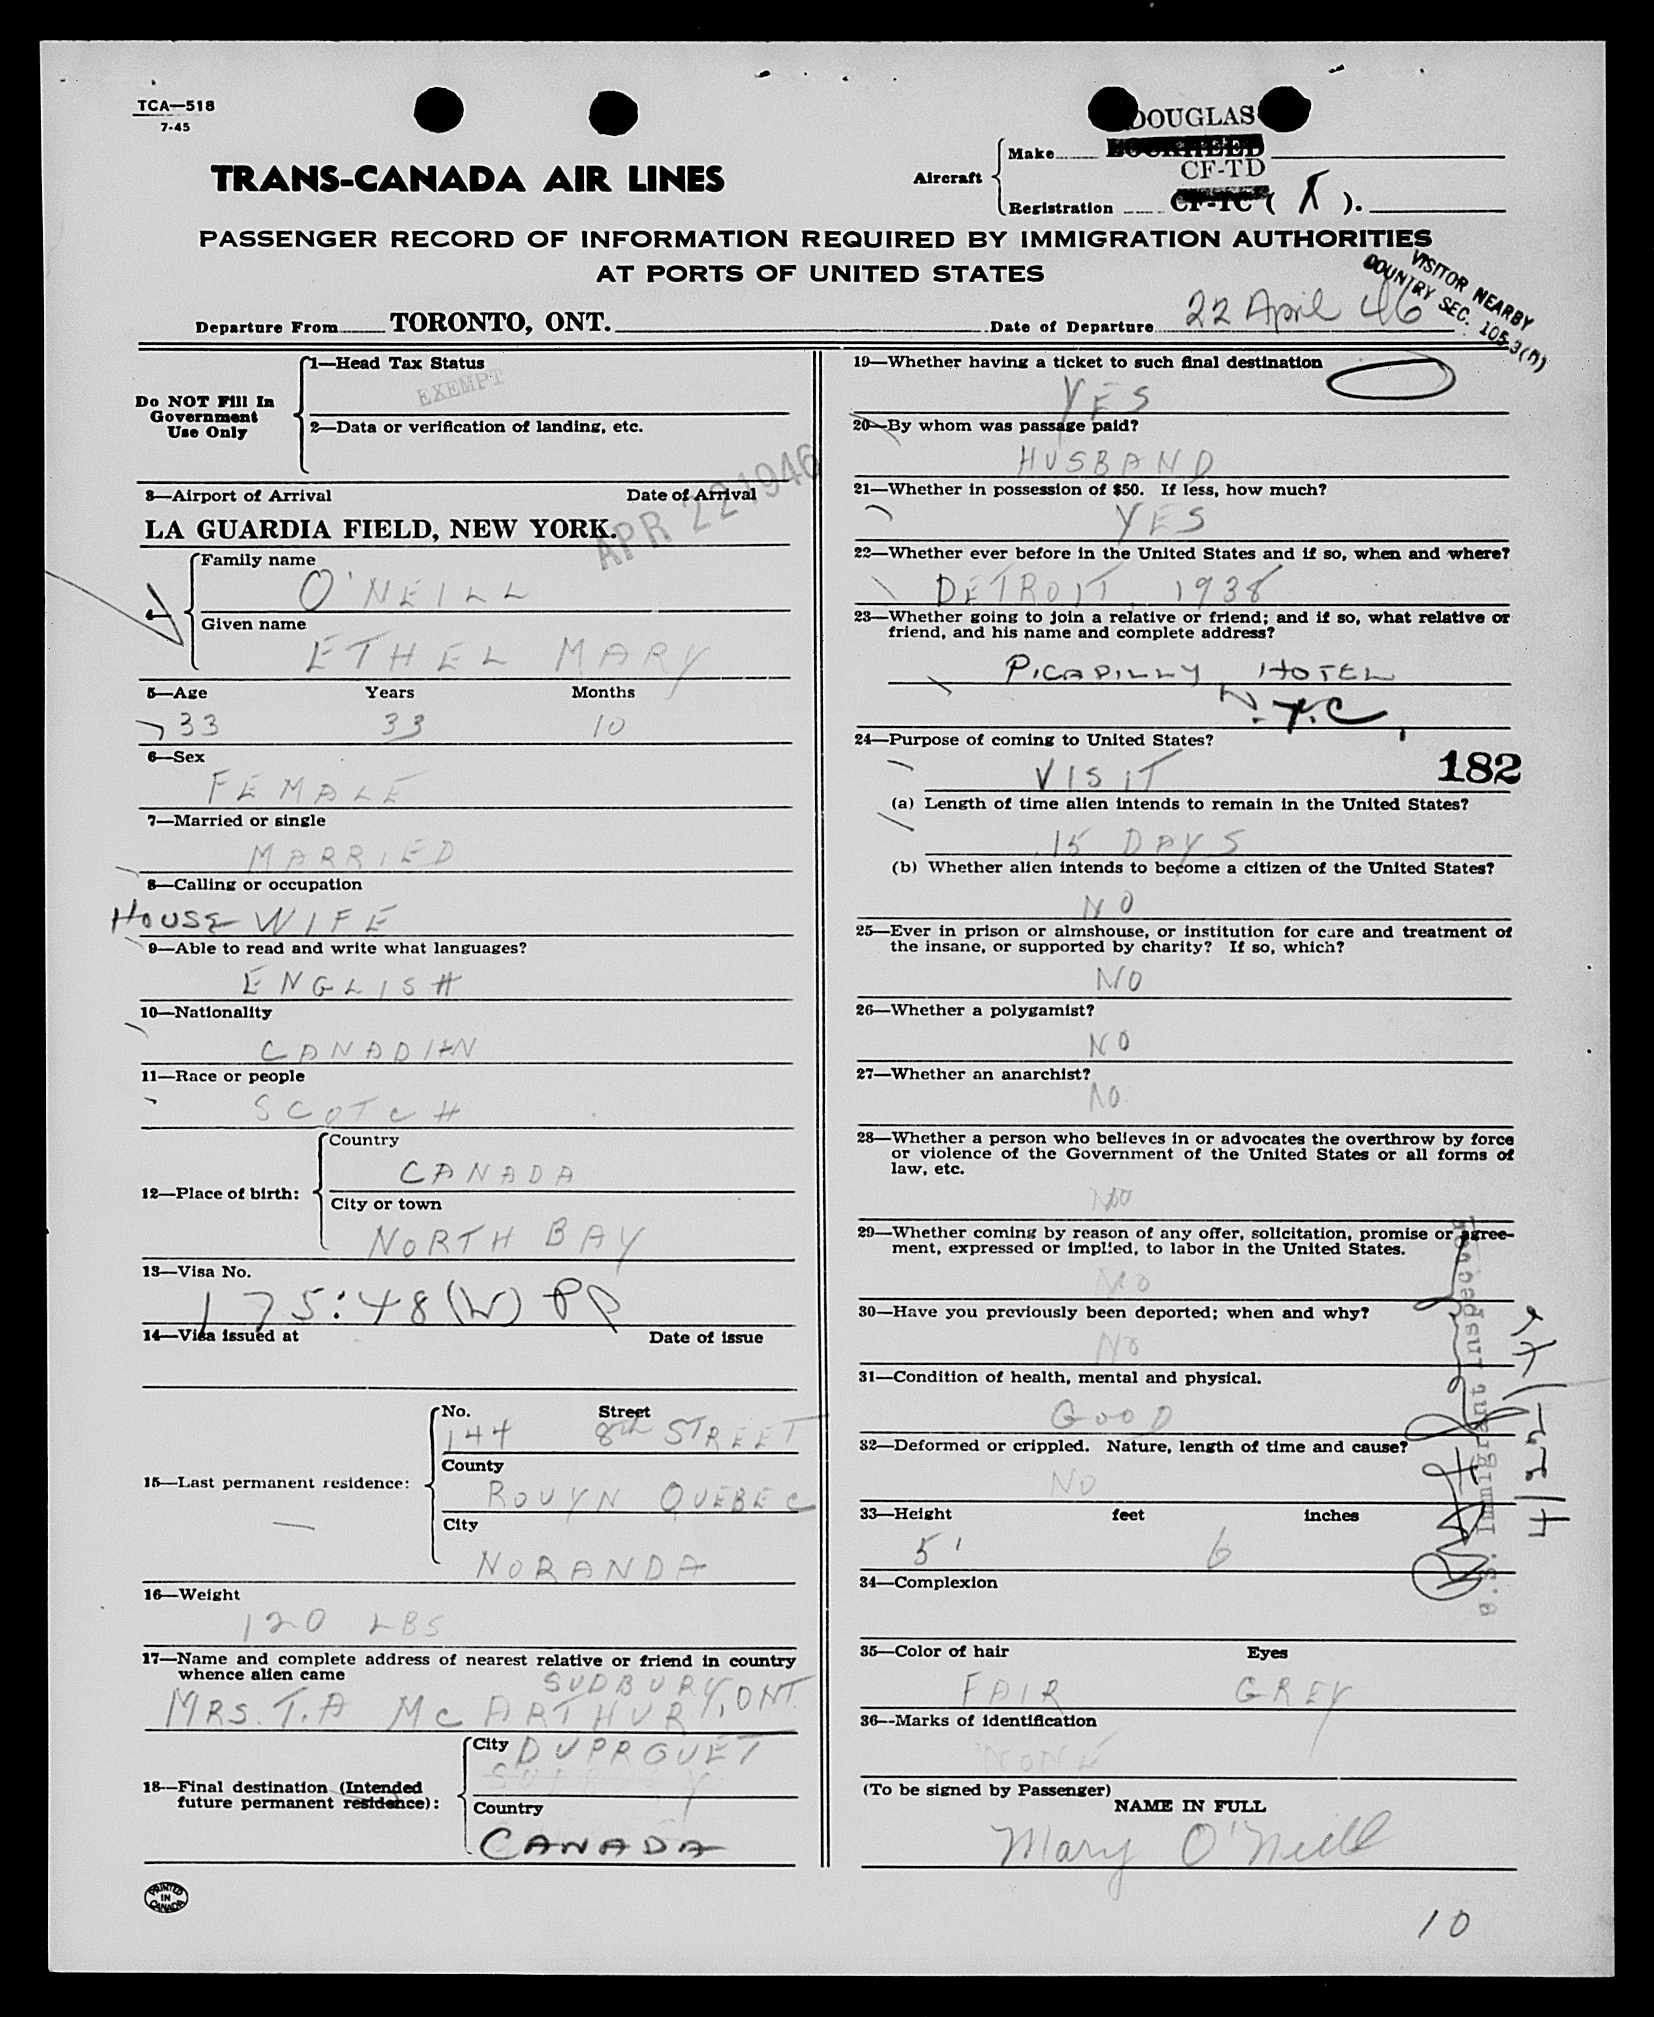 TCA—518
7-45
DOUGLAS
TRANS-CANADA AIR LINES
Aircraft
Make
LOCKHEED
CF-TD
Registration
CF-TC ( ).
PASSENGER RECORD OF INFORMATION REQUIRED BY IMMIGRATION AUTHORITIES
AT PORTS OF UNITED STATES
VISITOR NEARBY
COUNTRY SEC. 105.3(A)
Departure From TORONTO, ONT.
Date of Departure 22 April 46
Do NOT Fill In
Government
Use Only
1—Head Tax Status
EXEMPT
2—Data or verification of landing, etc.
3—Airport of Arrival Date of Arrival
LA GUARDIA FIELD, NEW YORK.
APR 22 1946
4—
Family name
O'NEILL
Given name
ETHEL MARY
5—Age Years Months
33 33 10
6—Sex
FEMALE
7—Married or single
MARRIED
8—Calling or occupation
HOUSEWIFE
9—Able to read and write what languages?
ENGLISH
10—Nationality
CANADIAN
11—Race or people
SCOTCH
12—Place of birth:
Country
CANADA
City or town
NORTH BAY
13—Visa No.
175:48(W) PP
14—Visa issued at Date of issue
15—Last permanent residence:
No. Street
144 8th STREET
County
ROUYN QUEBEC
City
NORANDA
16—Weight
120 LBS
17—Name and complete address of nearest relative or friend in country
whence alien came
SUDBURY, ONT.
MRS. T.A MCARTHUR
18—Final destination (Intended
future permanent residence):
City DUPRQUET
Country
CANADA
PRINTED
IN
CANADA
19—Whether having a ticket to such final destination
YES
20—By whom was passage paid?
HUSBAND
21—Whether in possession of $50. If less, how much?
YES
22—Whether ever before in the United States and if so, when and where?
DETROIT, 1938
23—Whether going to join a relative or friend; and if so, what relative or
friend, and his name and complete address?
PICADILLY HOTEL
N.Y.C.
24—Purpose of coming to United States?
VISIT
182
(a) Length of time alien intends to remain in the United States?
15 DAYS
(b) Whether alien intends to become a citizen of the United States?
NO
25—Ever in prison or almshouse, or institution for care and treatment of
the insane, or supported by charity? If so, which?
NO
26—Whether a polygamist?
NO
27—Whether an anarchist?
NO
28—Whether a person who believes in or advocates the overthrow by force
or violence of the Government of the United States or all forms of
law, etc.
NO
29—Whether coming by reason of any offer, solicitation, promise or agree-
ment, expressed or implied, to labor in the United States.
NO
30—Have you previously been deported; when and why?
NO
31—Condition of health, mental and physical.
GOOD
32—Deformed or crippled. Nature, length of time and cause?
NO
33—Height feet inches
5' 6
34—Complexion
35—Color of hair Eyes
FAIR GREY
36—Marks of identification
NONE
(To be signed by Passenger)
NAME IN FULL
Mary O'Neill
U.S. Immigrant Inspector
10